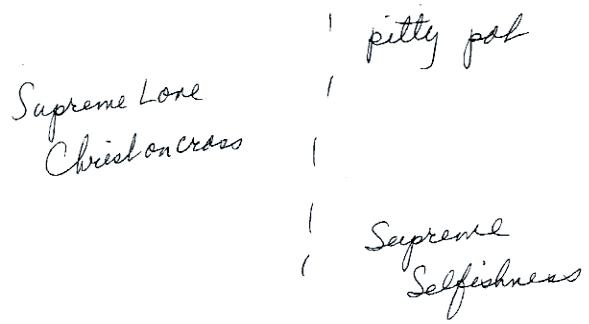 pitty pat
Supreme Love
Christ on cross
Supreme
Selfishness